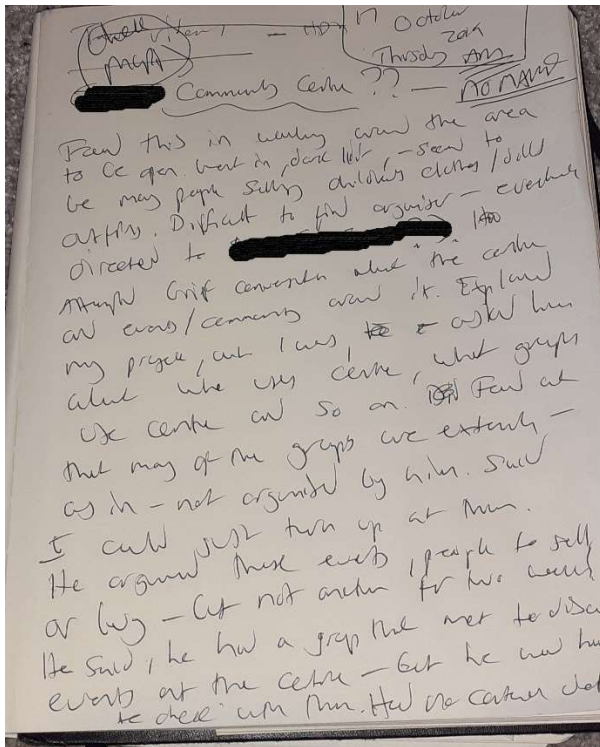 17 October
Thursday 2019
AM
Community Centre ?? — NO NAME
Found this in walking around the area
to be open. Went in, dark lit, - seemed to
be many people selling childrens clothes/dolls
outfits. Difficult to find organiser - eventually
directed to
Attempted brief conversation about "the centre
and events/community around it. Explained
my project, who I was, asked him
about who uses centre, what groups
use centre and so on. Found out
that many of the groups are externally -
as in - not organised by him. Said
I could just turn up at them.
He organised these events, people to sell
or buy - but not another for two weeks
He said, he had a group that met to discuss
events at the centre - But he would have
to check with them. Had one